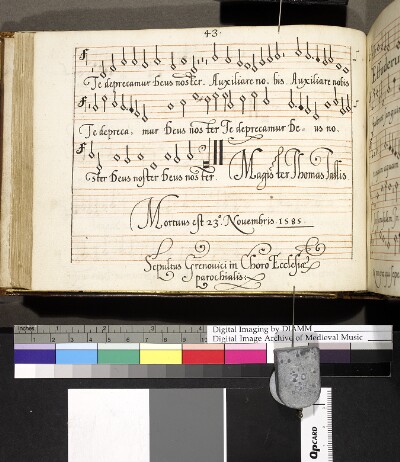 43.
Te deprecamur Deus noster. Auxiliare no. bis. Auxiliare nobis
Te depreca. mur Deus nos ter Te deprecamur De. us no.
ster Deus noster Deus nos ter. Magister Thomas Tallis
Mortuus est 23°. Nouembris. 1585.
Sepultus Grenouici in Choro Ecclesiæ
parochialis.
inches 1 2 3
Digital Imaging by DIAMM
Digital Image Archive of Medieval Music
QPCARD